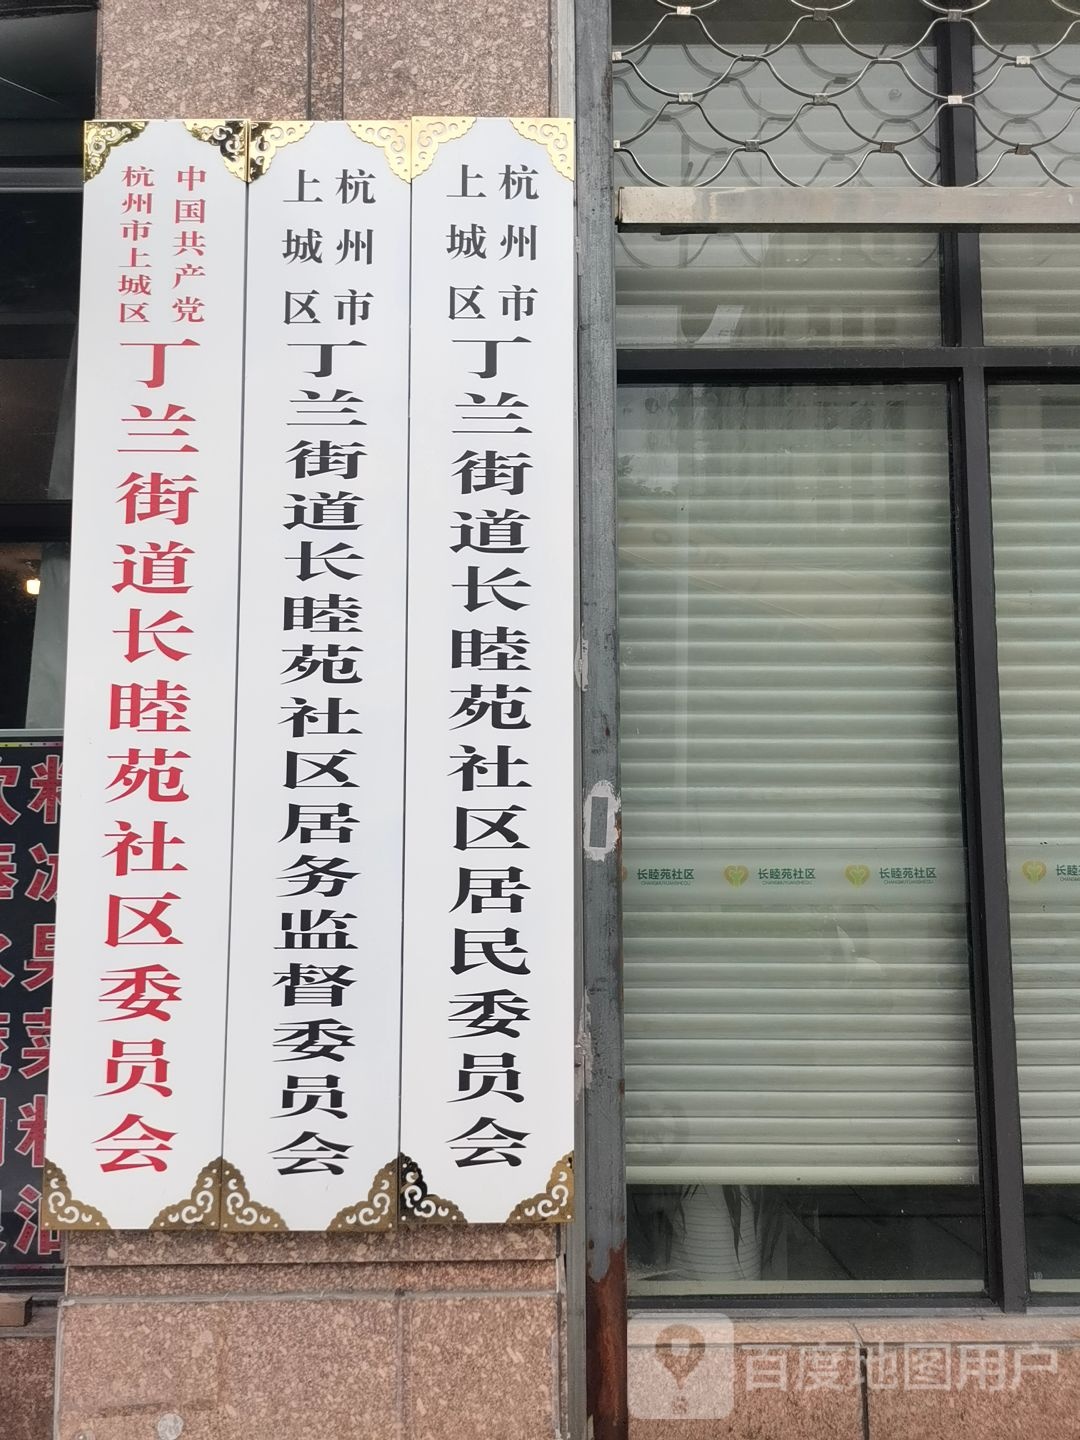 中国共产党
杭州市上城区
丁兰街道长睦苑社区委员会
杭州市
上城区
丁兰街道长睦苑社区居务监督委员会
杭州市
上城区
丁兰街道长睦苑社区居民委员会
长睦苑社区
CHANGMUYUANSHEQU
长睦苑社区
CHANGMUYUANSHEQU
长睦苑社区
CHANGMUYUANSHEQU
长睦苑
百度地图用户